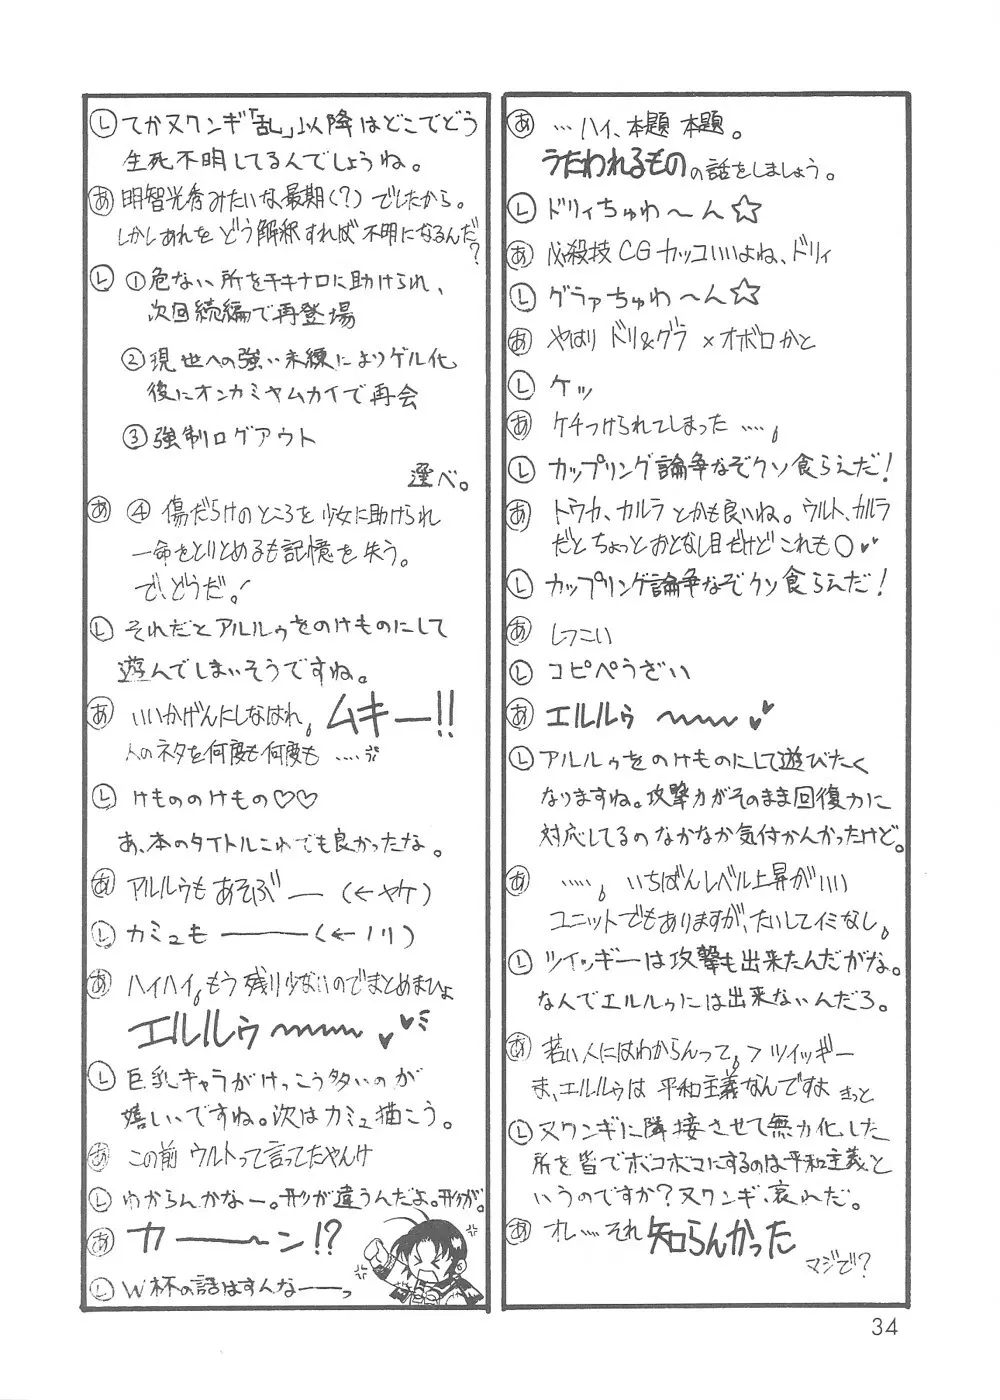 あ …ハイ、本題 本題。
うたわれるものの話をしましょう。
し ドリィちゅわ〜ん☆
あ 必殺技CGカッコいいよね、ドリィ
し グラァちゅわ〜ん☆
あ やはり ドリ&グラ×オボロかと
し ケッ
あ ケチつけられてしまった……。
し カップリング論争なぞクソ食らえだ!
あ トウカ、カルラとかも良いね。ウルト、カルラ
だとちょっとおとなし目だけどこれも○♥♥
し カップリング論争なぞクソ食らえだ!
あ しつこい
し コピペうざい
あ エルルゥ 〜〜〜♥♥
し アルルゥをのけものにして遊びたく
なりますね。攻撃力がそのまま回復力に
対応してるのなかなか気付かんかったけど。
あ ……。いちばんレベル上昇がいい
ユニットでもありますが、たいしてイミなし。
し ツイッギーは攻撃も出来たんだがな。
なんでエルルゥには出来ないんだろ。
あ 若い人にはわからんって。>ツイッギー
ま、エルルゥは 平和主義なんですよ きっと
し ヌワンギに隣接させて無力化した
所を皆でボコボコにするのは平和主義と
いうのですか?ヌワンギ、哀れだ。
あ オレ……それ知らんかった
マジで?
し てかヌワンギ「乱」以降はどこでどう
生死不明してるんでしょうね。
あ 明智光秀みたいな最期(?)でしたから。
しかしあれをどう解釈すれば不明になるんだ?
し ①危ない所をチキナロに助けられ、
次回続編で再登場
②現世への強い未練によりゲル化
後にオンカミヤムカイで再会
③強制ログアウト
選べ。
あ ④ 傷だらけのところを少女に助けられ
一命をとりとめるも記憶を失う。
で、どうだ!
し それだとアルルゥをのけものにして
遊んでしまいそうですね。
あ いいかげんにしなはれ。ムキー!!
人のネタを何度も何度も……
し けもののけもの♡♡
あ、本のタイトルこれでも良かったな。
あ アルルゥもあそぶ――(←ヤケ)
し カミュも―――(←ノリ)
あ ハイハイ。もう残り少ないのでまとめまひょ
エルルゥ〜〜〜♥♥
し 巨乳キャラがけっこう多いのが
嬉しいですね。次はカミュ描こう。
あ この前 ウルトって言ってたやんけ
し わからんかなー。形が違うんだよ。形が。
あ カ――〜ン!?
し W杯の話はすんな――っ
34